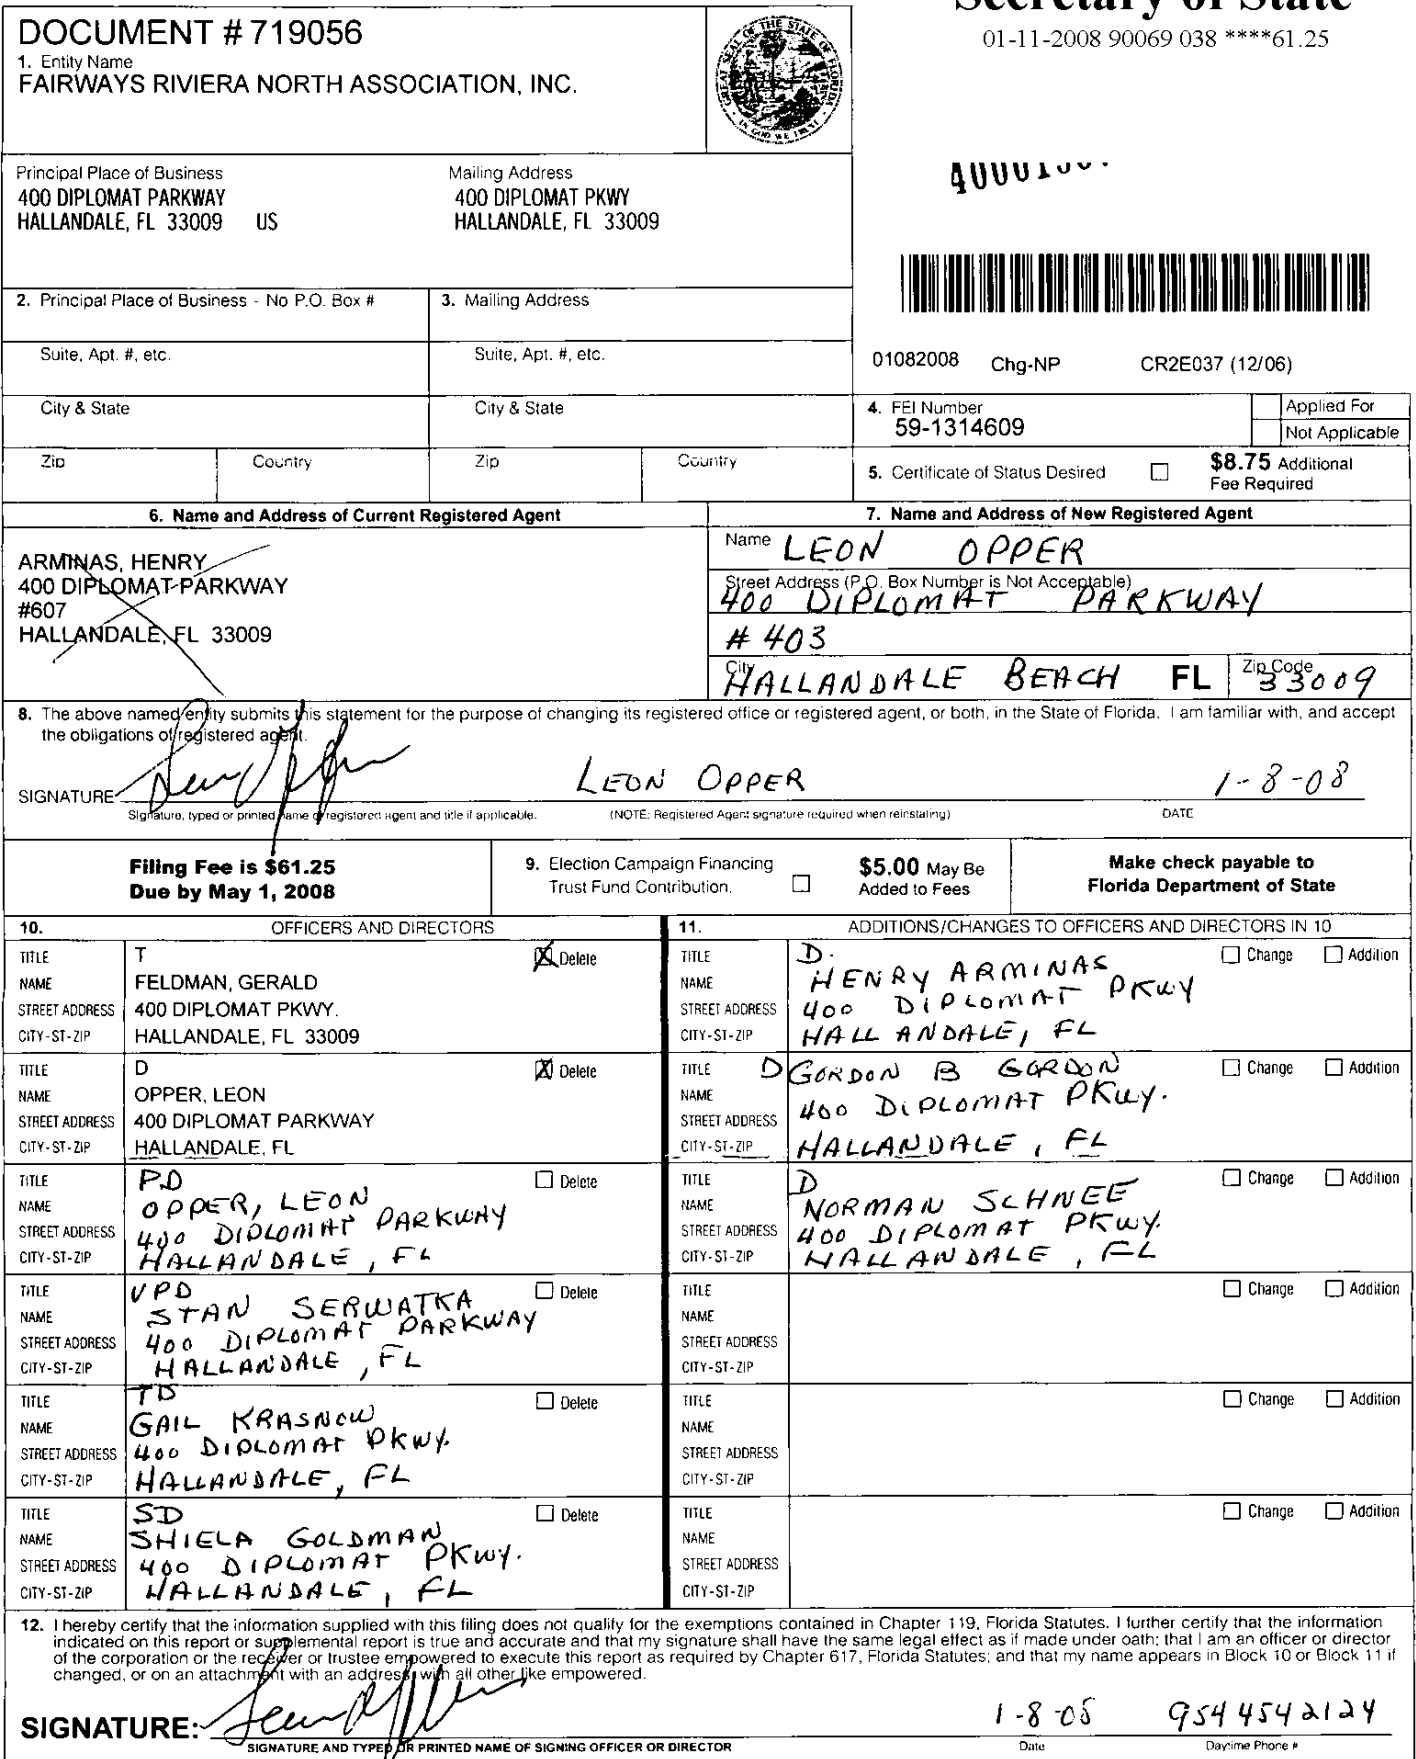 Secretary of State
01-11-2008 90069 038 ****61.25
DOCUMENT # 719056
1. Entity Name
FAIRWAYS RIVIERA NORTH ASSOCIATION, INC.
GREAT SEAL OF THE STATE OF FLORIDA
IN GOD WE TRUST
Principal Place of Business
400 DIPLOMAT PARKWAY
HALLANDALE, FL 33009 US
Mailing Address
400 DIPLOMAT PKWY
HALLANDALE, FL 33009
2. Principal Place of Business - No P.O. Box #
3. Mailing Address
Suite, Apt. #, etc.
Suite, Apt. #, etc.
City & State
City & State
Zip Country
Zip Country
01082008 Chg-NP CR2E037 (12/06)
4. FEI Number
59-1314609
Applied For
Not Applicable
5. Certificate of Status Desired
$8.75 Additional
Fee Required
6. Name and Address of Current Registered Agent
ARMINAS, HENRY
400 DIPLOMAT PARKWAY
#607
HALLANDALE, FL 33009
7. Name and Address of New Registered Agent
Name LEON OPPER
Street Address (P.O. Box Number is Not Acceptable)
400 DIPLOMAT PARKWAY
# 403
City HALLANDALE BEACH FL Zip Code 33009
8. The above named entity submits this statement for the purpose of changing its registered office or registered agent, or both, in the State of Florida. I am familiar with, and accept
the obligations of registered agent.
SIGNATURE LEON OPPER 1-8-08
Signature, typed or printed name of registered agent and title if applicable. (NOTE: Registered Agent signature required when reinstating) DATE
Filing Fee is $61.25
Due by May 1, 2008
9. Election Campaign Financing
Trust Fund Contribution.
$5.00 May Be
Added to Fees
Make check payable to
Florida Department of State
10. OFFICERS AND DIRECTORS
TITLE T X Delete
NAME FELDMAN, GERALD
STREET ADDRESS 400 DIPLOMAT PKWY.
CITY-ST-ZIP HALLANDALE, FL 33009
TITLE D X Delete
NAME OPPER, LEON
STREET ADDRESS 400 DIPLOMAT PARKWAY
CITY-ST-ZIP HALLANDALE, FL
TITLE PD Delete
NAME OPPER, LEON
STREET ADDRESS 400 DIPLOMAT PARKWAY
CITY-ST-ZIP HALLANDALE, FL
TITLE VPD Delete
NAME STAN SERWATKA
STREET ADDRESS 400 DIPLOMAT PARKWAY
CITY-ST-ZIP HALLANDALE, FL
TITLE TD Delete
NAME GAIL KRASNOW
STREET ADDRESS 400 DIPLOMAT PKWY.
CITY-ST-ZIP HALLANDALE, FL
TITLE SD Delete
NAME SHIELA GOLDMAN
STREET ADDRESS 400 DIPLOMAT PKWY.
CITY-ST-ZIP HALLANDALE, FL
11. ADDITIONS/CHANGES TO OFFICERS AND DIRECTORS IN 10
TITLE D. Change Addition
NAME HENRY ARMINAS
STREET ADDRESS 400 DIPLOMAT PKWY
CITY-ST-ZIP HALLANDALE, FL
TITLE D GORDON B GORDON Change Addition
NAME
STREET ADDRESS 400 DIPLOMAT PKWY.
CITY-ST-ZIP HALLANDALE, FL
TITLE D Change Addition
NAME NORMAN SCHNEE
STREET ADDRESS 400 DIPLOMAT PKWY.
CITY-ST-ZIP HALLANDALE, FL
TITLE Change Addition
NAME
STREET ADDRESS
CITY-ST-ZIP
TITLE Change Addition
NAME
STREET ADDRESS
CITY-ST-ZIP
TITLE Change Addition
NAME
STREET ADDRESS
CITY-ST-ZIP
12. I hereby certify that the information supplied with this filing does not qualify for the exemptions contained in Chapter 119, Florida Statutes. I further certify that the information
indicated on this report or supplemental report is true and accurate and that my signature shall have the same legal effect as if made under oath; that I am an officer or director
of the corporation or the receiver or trustee empowered to execute this report as required by Chapter 617, Florida Statutes; and that my name appears in Block 10 or Block 11 if
changed, or on an attachment with an address, with all other like empowered.
SIGNATURE: 1-8-08 9544542124
SIGNATURE AND TYPED OR PRINTED NAME OF SIGNING OFFICER OR DIRECTOR Date Daytime Phone #